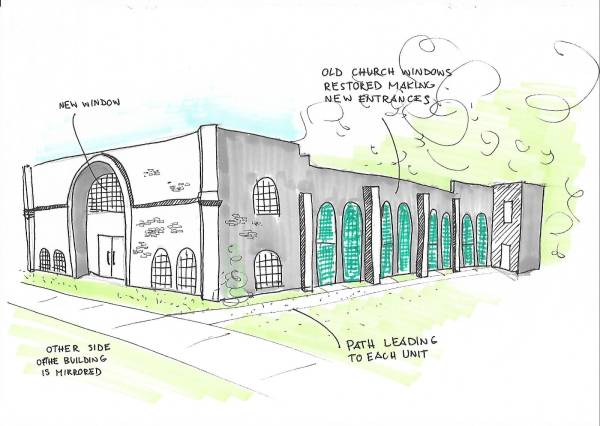 NEW WINDOW
OLD CHURCH WINDOWS
RESTORED MAKING
NEW ENTRANCES
OTHER SIDE
OFTHE BUILDING
IS MIRRORED
PATH LEADING
TO EACH UNIT